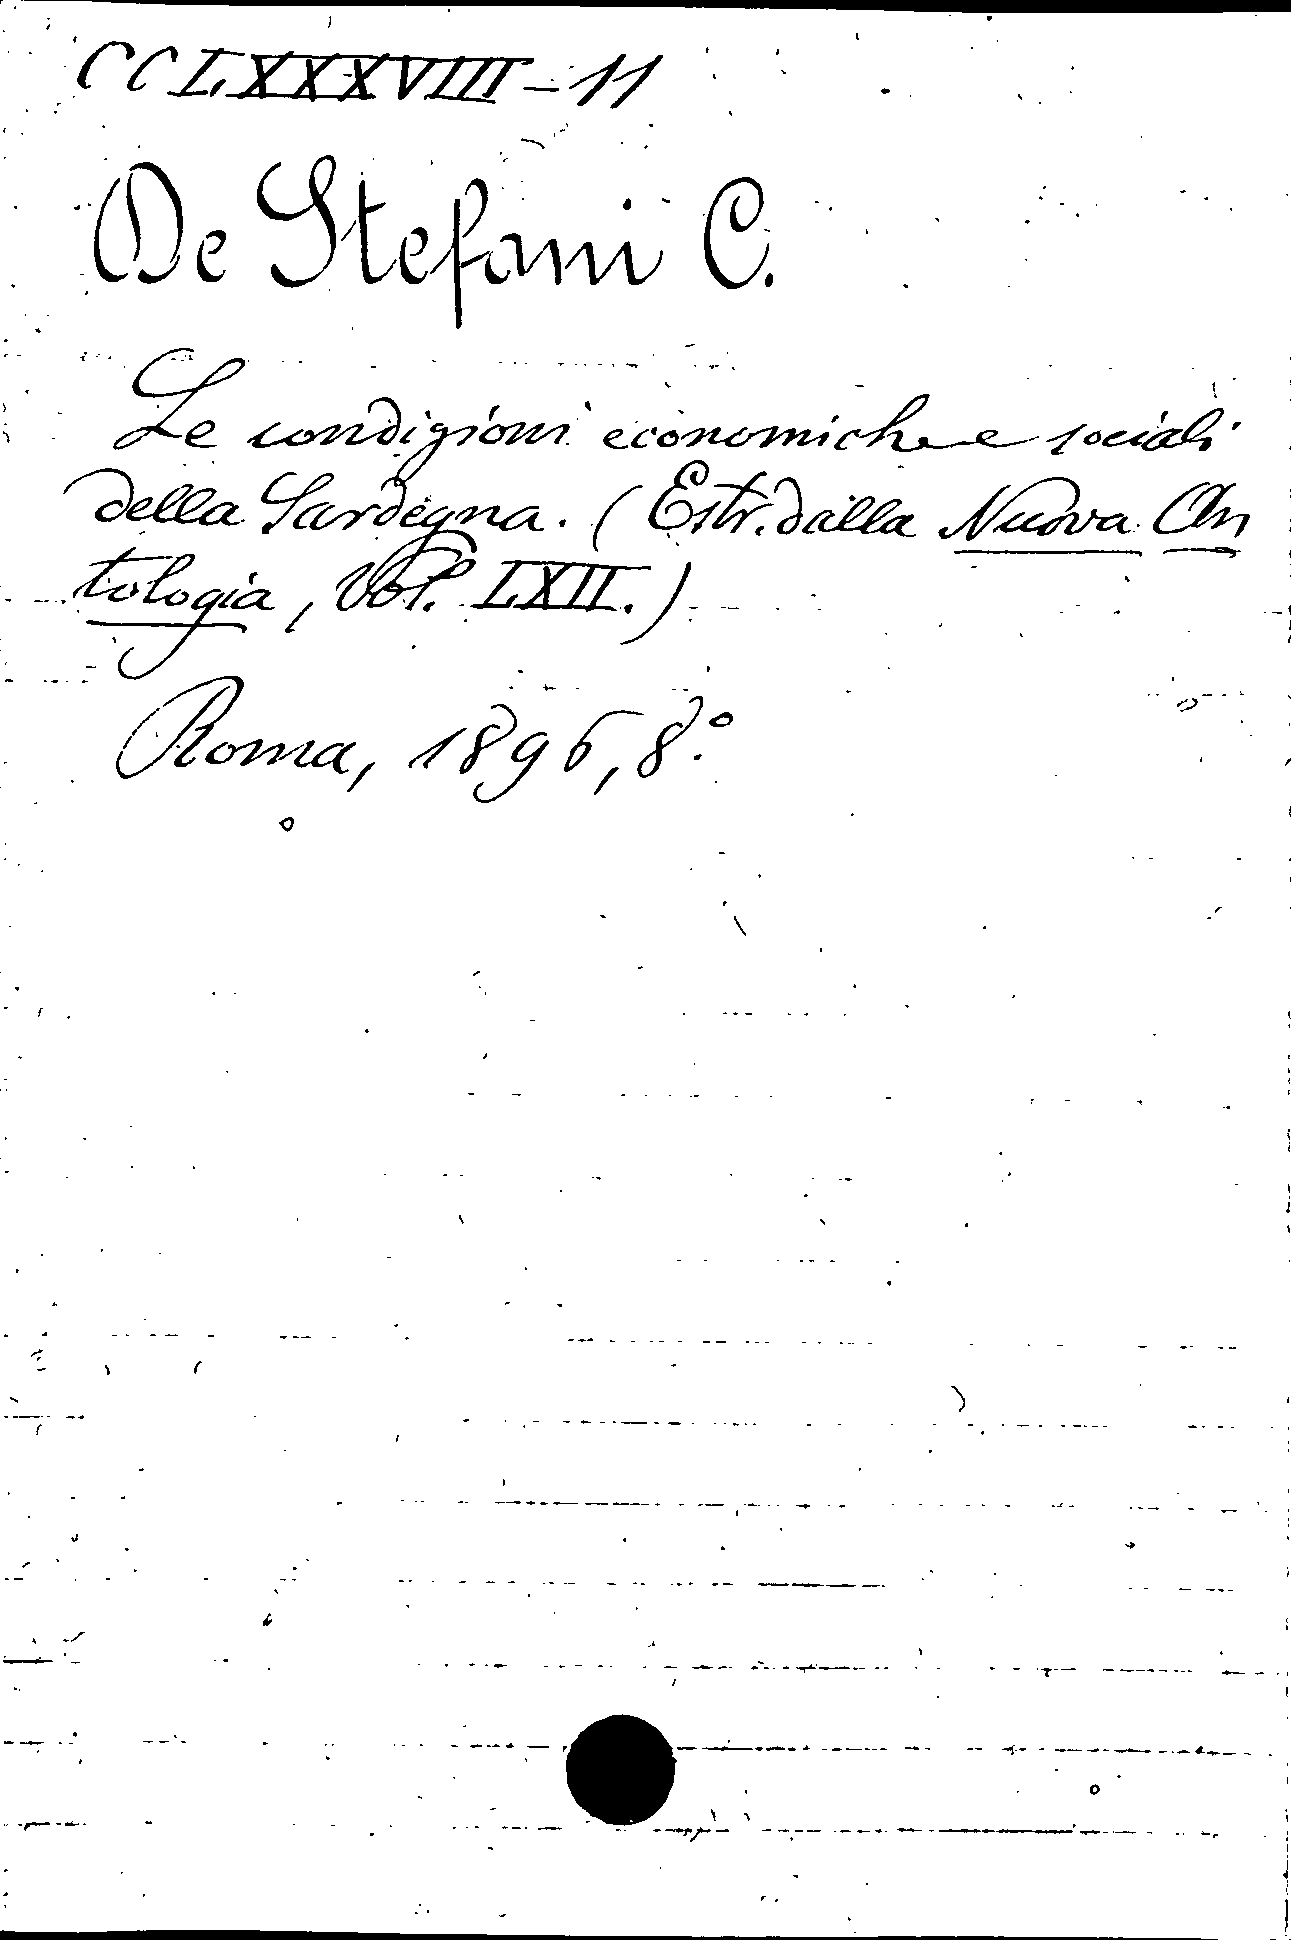 CCLXXXVIII-11
De Stefani C.
Le condizioni economiche e sociali
della Sardegna. (Estr. dalla Nuova An
tologia, Vol. LXII.)
Roma, 1896, 8.°